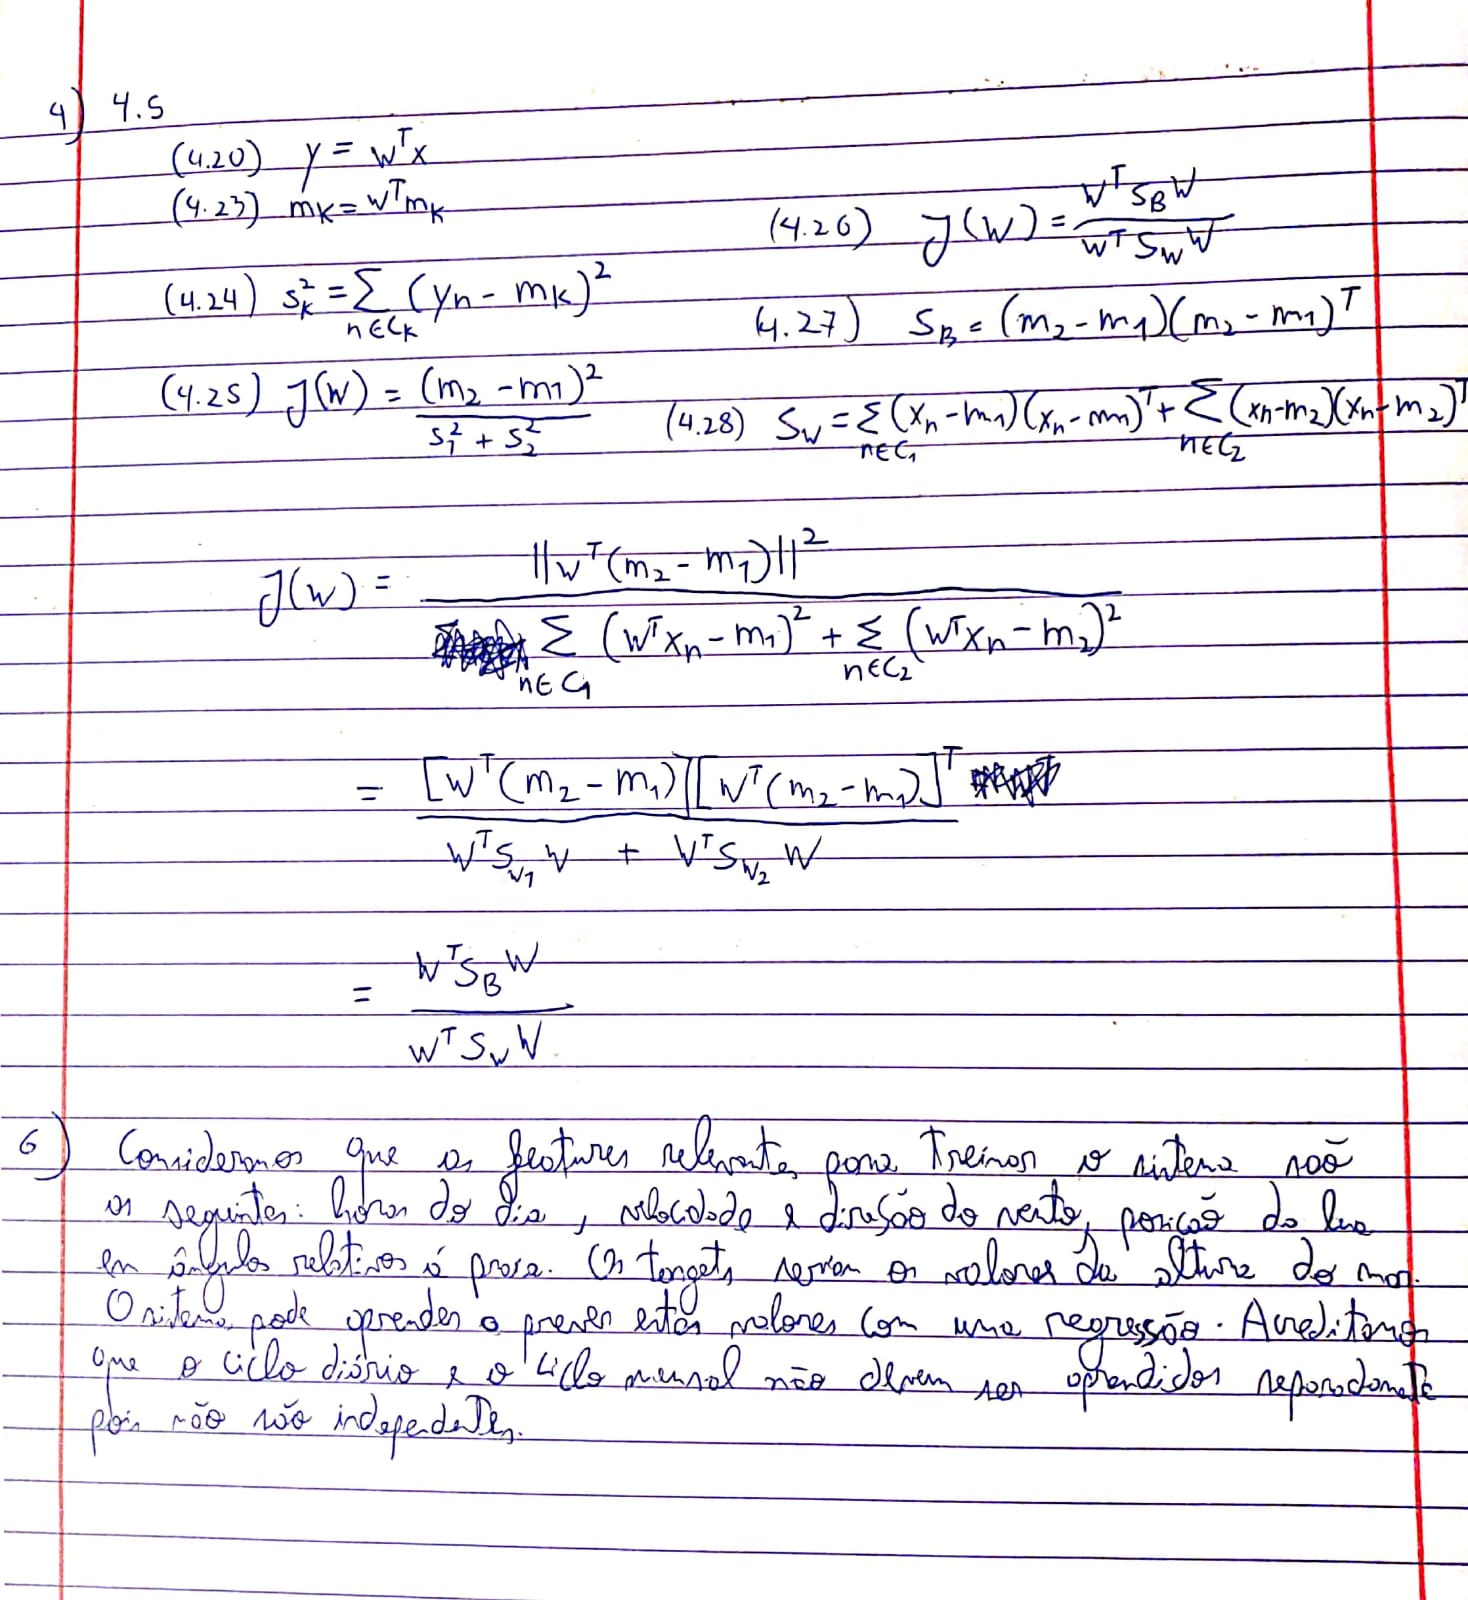 4) 4.5
(4.20) y = wᵀx
(4.23) mₖ = wᵀmₖ
(4.26) J(w) = wᵀS_B w / wᵀS_w w
(4.24) sₖ² = Σ_{n∈Cₖ} (yₙ - mₖ)²
(4.27) S_B = (m₂ - m₁)(m₂ - m₁)ᵀ
(4.25) J(w) = (m₂ - m₁)² / s₁² + s₂²
(4.28) S_w = Σ_{n∈C₁} (xₙ - m₁)(xₙ - m₁)ᵀ + Σ_{n∈C₂} (xₙ - m₂)(xₙ - m₂)ᵀ
J(w) = ||wᵀ(m₂ - m₁)||² / Σ_{n∈C₁} (wᵀxₙ - m₁)² + Σ_{n∈C₂} (wᵀxₙ - m₂)²
= [wᵀ(m₂ - m₁)][wᵀ(m₂ - m₁)]ᵀ / wᵀS_{w₁} w + wᵀS_{w₂} w
= wᵀS_B w / wᵀS_w w
6) Consideramos que as features relevantes para treinar o sistema são
as seguintes: horas do dia, velocidade e diresão do vento, posição da lua
em ângulos relativos á praia. Os targets seriam os valores da altura do mar.
O sistema pode aprender a prever estes valores com uma regressão. Acreditamos
que o ciclo diário e o ciclo mensal não devem ser aprendidos separadamente
pois não são independentes.